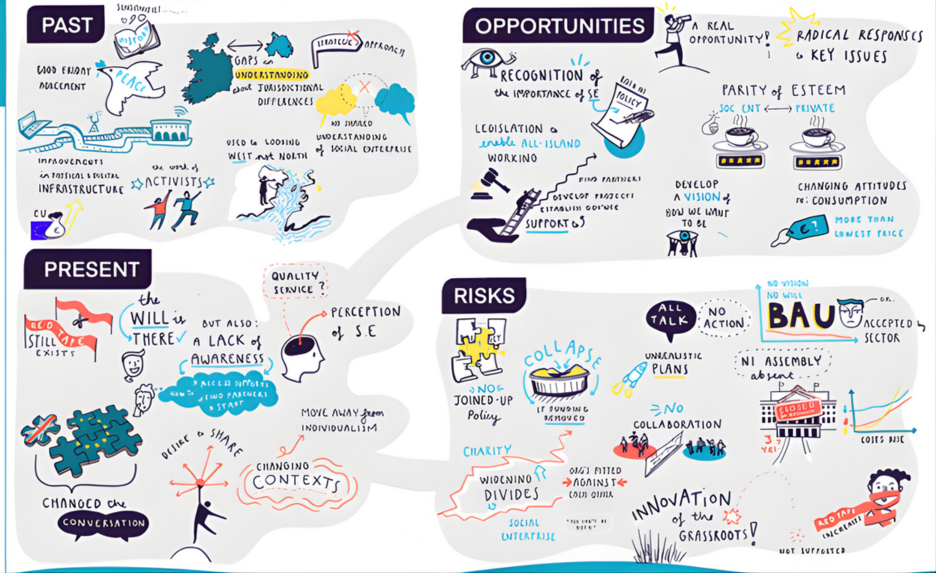 PAST
HISTORY
GOOD FRIDAY
AGREEMENT
PEACE
GAPS in
UNDERSTANDING
about JURISDICTIONAL
DIFFERENCES
STRATEGIC
APPROACH
NO SHARED
UNDERSTANDING
of SOCIAL ENTERPRISE
IMPROVEMENTS
in PHYSICAL & DIGITAL
INFRASTRUCTURE
the work of
ACTIVISTS
USED to LOOKING
WEST not NORTH
EU
OPPORTUNITIES
RECOGNITION of
the IMPORTANCE of SE
POLICY
A REAL
OPPORTUNITY!
RADICAL RESPONSES
to KEY ISSUES
PARITY of ESTEEM
SOC ENT
PRIVATE
LEGISLATION to
enable ALL-ISLAND
WORKING
FIND PARTNERS
DEVELOP PROJECTS
SUPPORTS
DEVELOP
A VISION of
HOW WE WANT
TO BE
CHANGING ATTITUDES
re: CONSUMPTION
€?
MORE THAN
LOWEST PRICE
PRESENT
RED TAPE
STILL
EXISTS
the
WILL is
THERE
BUT ALSO:
A LACK of
AWARENESS
HOW to
ACCESS SUPPORTS
FIND PARTNERS
START
QUALITY
SERVICE?
PERCEPTION
of S.E
CHANGED the
CONVERSATION
DESIRE to SHARE
MOVE AWAY from
INDIVIDUALISM
CHANGING
CONTEXTS
RISKS
NOT
JOINED-UP
Policy
COLLAPSE
IF FUNDING
REMOVED
ALL
TALK
NO
ACTION
UNREALISTIC
PLANS
NO VISION
NO WILL
BAU
OR..
ACCEPTED by
SECTOR
NO
COLLABORATION
NI ASSEMBLY
absent..
CLOSED
3
YRS
COSTS RISE
CHARITY
WIDENING
DIVIDES
SOCIAL
ENTERPRISE
ORG'S PITTED
AGAINST
EACH OTHER
INNOVATION
of the
GRASSROOTS!
NOT SUPPORTED
RED TAPE
INCREASES